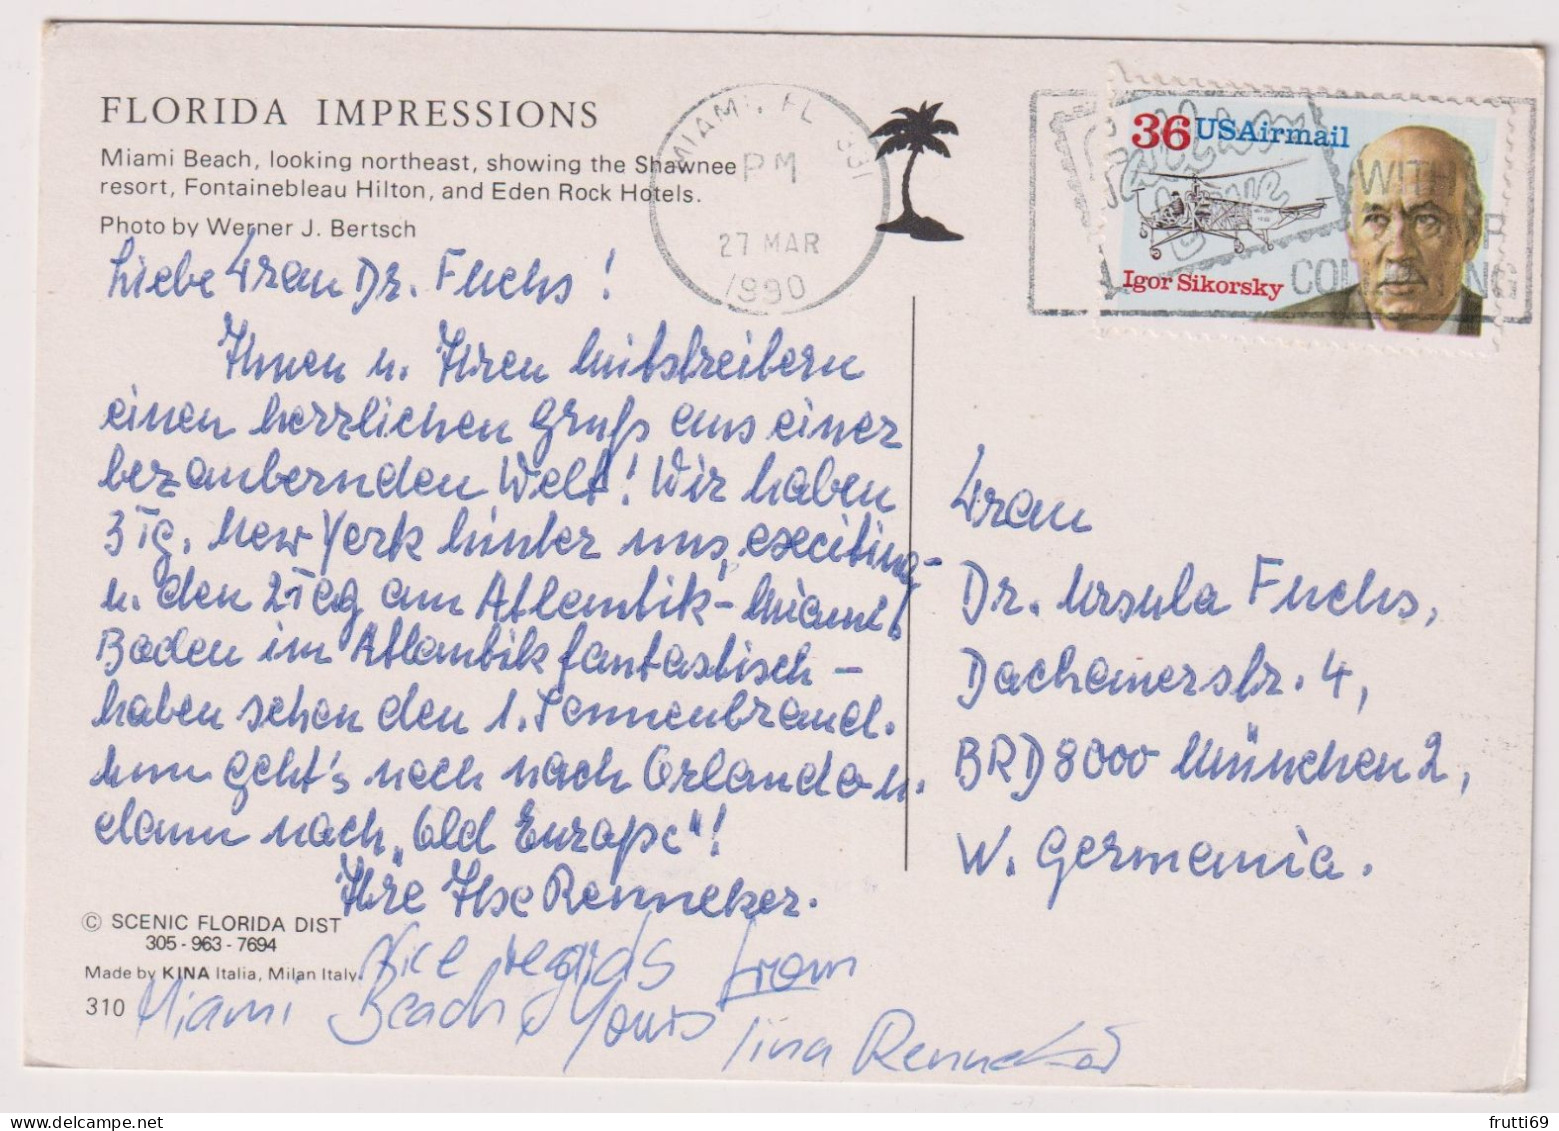 FLORIDA IMPRESSIONS
Miami Beach, looking northeast, showing the Shawnee
resort, Fontainebleau Hilton, and Eden Rock Hotels.
Photo by Werner J. Bertsch
MIAMI, FL 331
PM
27 MAR
1990
36 USAirmail
Igor Sikorsky
WITH
COLLECTING
Liebe Frau Dr. Fuchs!
Ihnen u. Ihren Mitstreitern
einen herzlichen Gruß aus einer
bezaubernden Welt! Wir haben
3 Tg. New York hinter uns, exciting –
u. den 2 Tag am Atlantik – Miami!
Baden im Atlantik fantastisch –
haben schon den 1. Sonnenbrand.
Nun geht's noch nach Orlando u.
dann nach „Old Europe"!
Ihre Ilse Renneker.
Nice regards from
Miami Beach Yours Tina Renneker
Frau
Dr. Ursula Fuchs,
Dachauerstr. 4,
BRD 8000 München 2,
W. Germania.
© SCENIC FLORIDA DIST
305-963-7694
Made by KINA Italia, Milan Italy
310
frutti69